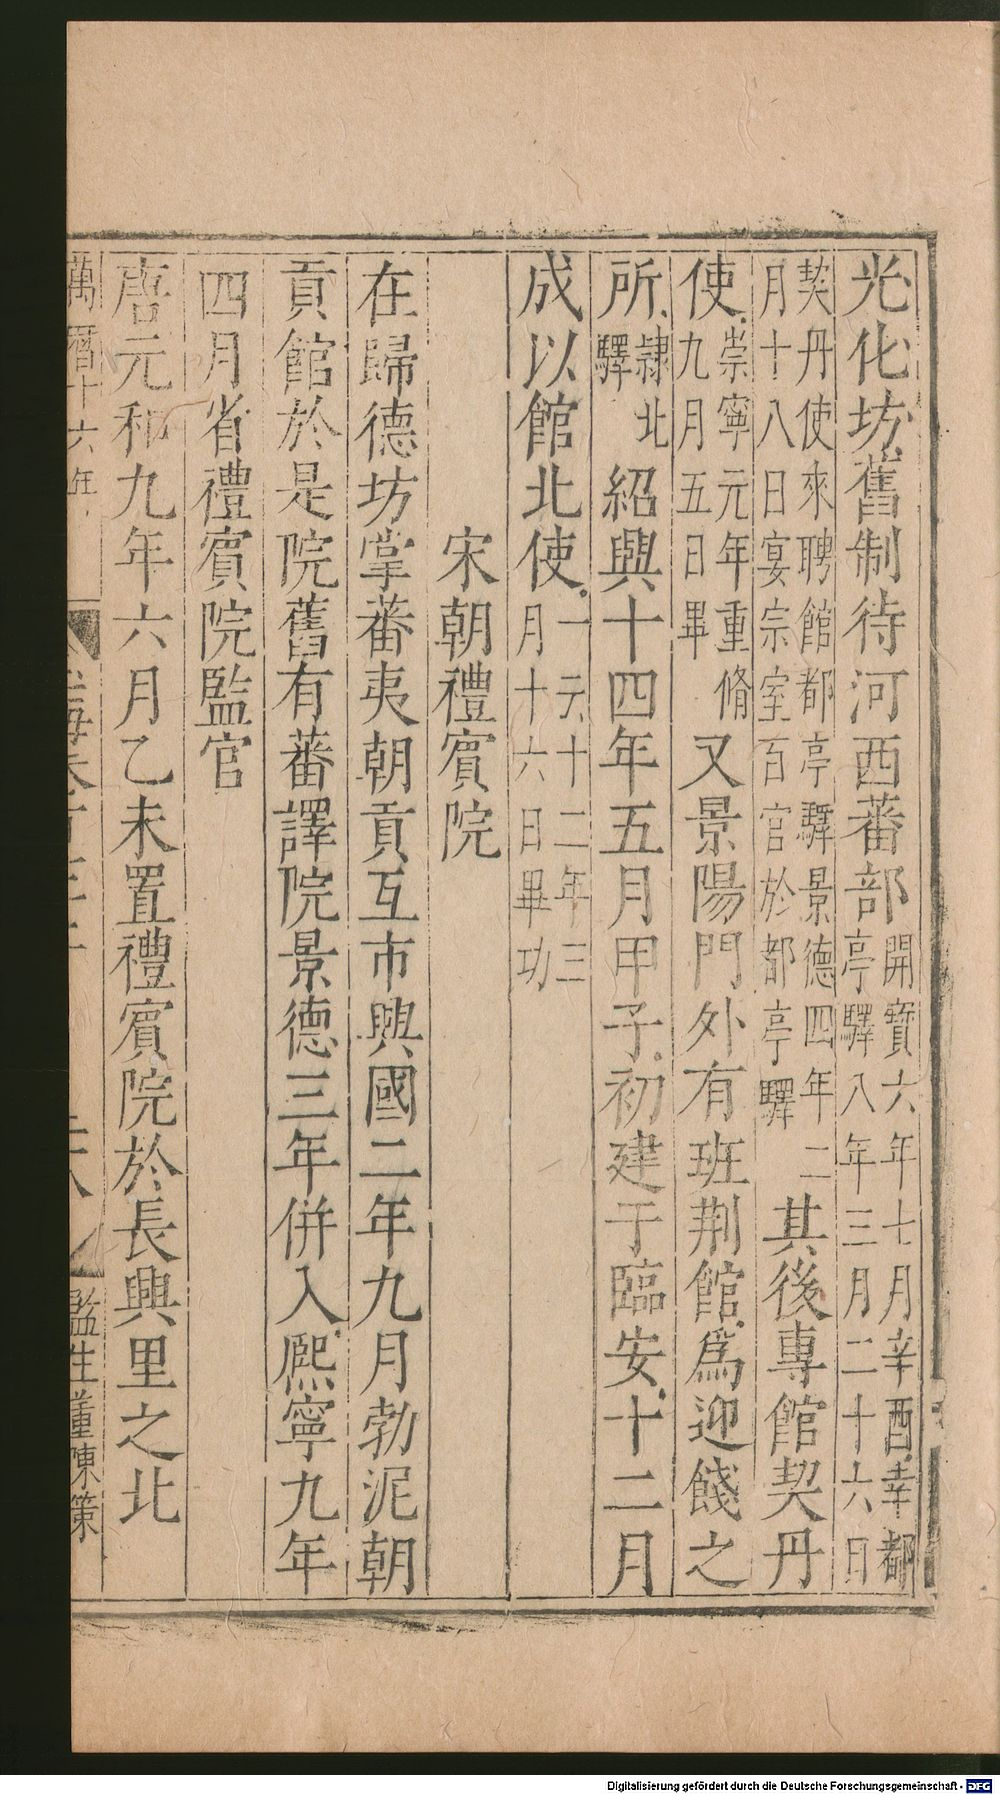 光化坊舊制待河西蕃部開寶六年七月辛酉幸都亭驛八年三月二十六日
契丹使來聘館都亭驛景德四年二月十八日宴宗室百官於都亭驛其後專館契丹
使崇寧元年重脩九月五日畢又景陽門外有班荆館爲迎餞之
所隷北驛紹興十四年五月甲子初建于臨安十二月
成以館北使一云十二年三月十六日畢功
宋朝禮賓院
在歸德坊掌蕃夷朝貢互市興國二年九月勃泥朝
貢館於是院舊有蕃譯院景德三年併入熈寧九年
四月省禮賓院監官
唐元和九年六月乙未置禮賓院於長興里之北
萬曆十六年
監生董陳策
Digitalisierung gefördert durch die Deutsche Forschungsgemeinschaft - DFG